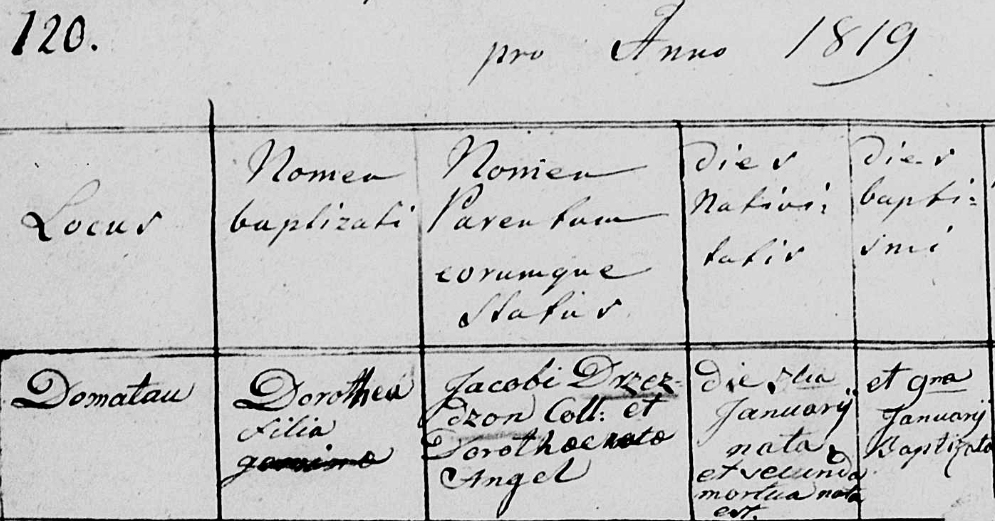 120.
pro Anno 1819
Locus
Nomen
baptizati
Nomen
Parentum
eorumque
Status
dies
Nativi:
tatis
dies
bapti:
smi
Domatau
Dorothea
filia
Jacobi Drzez-
dzon Coll: et
Dorotheae nata
Angel
die
Januarij
nata
et secunda
mortua nata
est.
et 9na
Januarij
Baptizata